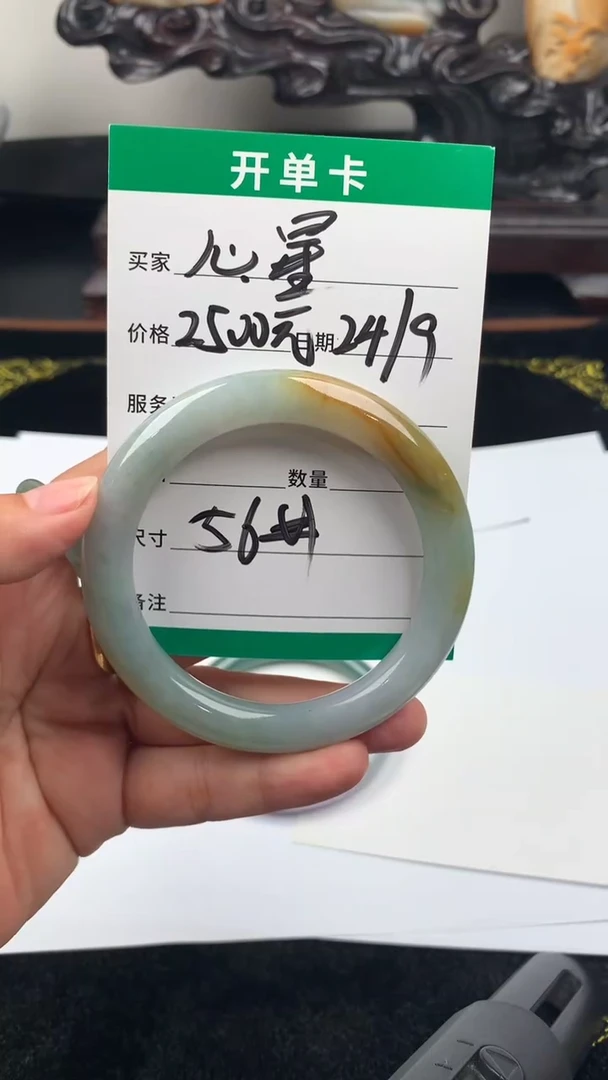 开单卡
买家 心.星
价格 2500元 日期 24/9
服务
数量
尺寸 56
备注